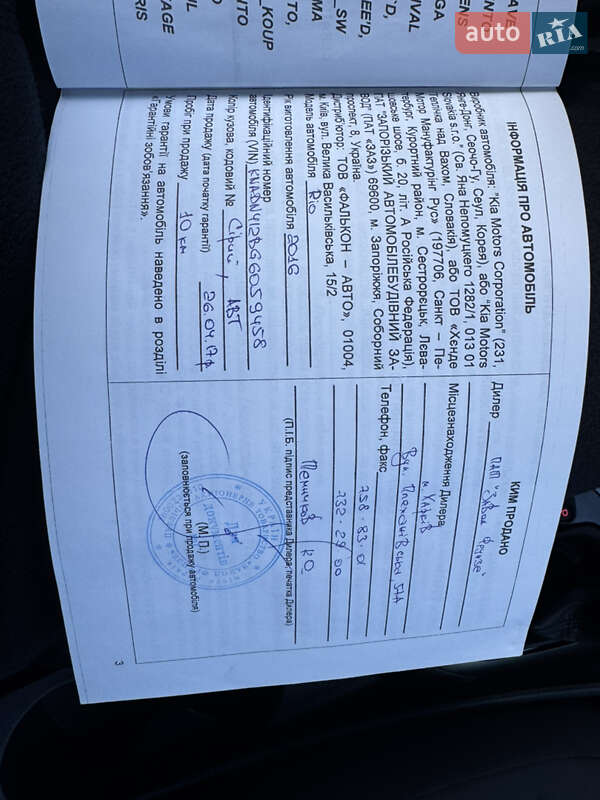 AVE
ENTO
ENS
GA
IVAL
D,
EE'D,
_SW
TO,
MA
_KOUP
ITO
O
UL
AGE
RIS
auto RIA.com
ІНФОРМАЦІЯ ПРО АВТОМОБІЛЬ
Виробник автомобіля: "Kia Motors Corporation" (231,
Янгє-Донг, Сеочо-Гу, Сеул, Корея), або "Kia Motors
Slovakia s.r.o." (Св. Яна Непомуцкего 1282/1, 013 01
Теплічка над Вахом, Словакія), або ТОВ «Хенде
Мотор Мануфактурінг Рус» (197706, Санкт – Пе-
тербург, Курортний район, м. Сестрорецьк, Лева-
шовське шосе, б. 20, літ. А Російська Федерація),
ПАТ "ЗАПОРІЗЬКИЙ АВТОМОБІЛЕБУДІВНИЙ ЗА-
ВОД" (ПАТ «ЗАЗ») 69600, м. Запоріжжя, Соборний
проспект, 8, Україна.
Дистриб'ютор: ТОВ «ФАЛЬКОН – АВТО», 01004,
м. Київ, вул. Велика Васильківська, 15/2
Модель автомобіля Rio
Рік виготовлення автомобіля 2016
Ідентифікаційний номер
автомобіля (VIN) KNADN412BG6059458
Колір кузова, кодовий № Сірий, ABT
Дата продажу (дата початку гарантії) 26.04.17р
Пробіг при продажу 10 км
Умови гарантії на автомобіль наведено в розділі
«Гарантійні зобов'язання».
КИМ ПРОДАНО
Дилер
Місцезнаходження Дилера
м. Харків
Вул. Плеханівська, 57А
Телефон, факс
758-83-01
732-29-00
(П.І.Б. підпис представника Дилера, печатка Дилера)
(М.П.)
(заповнюється при продажу автомобіля)
3